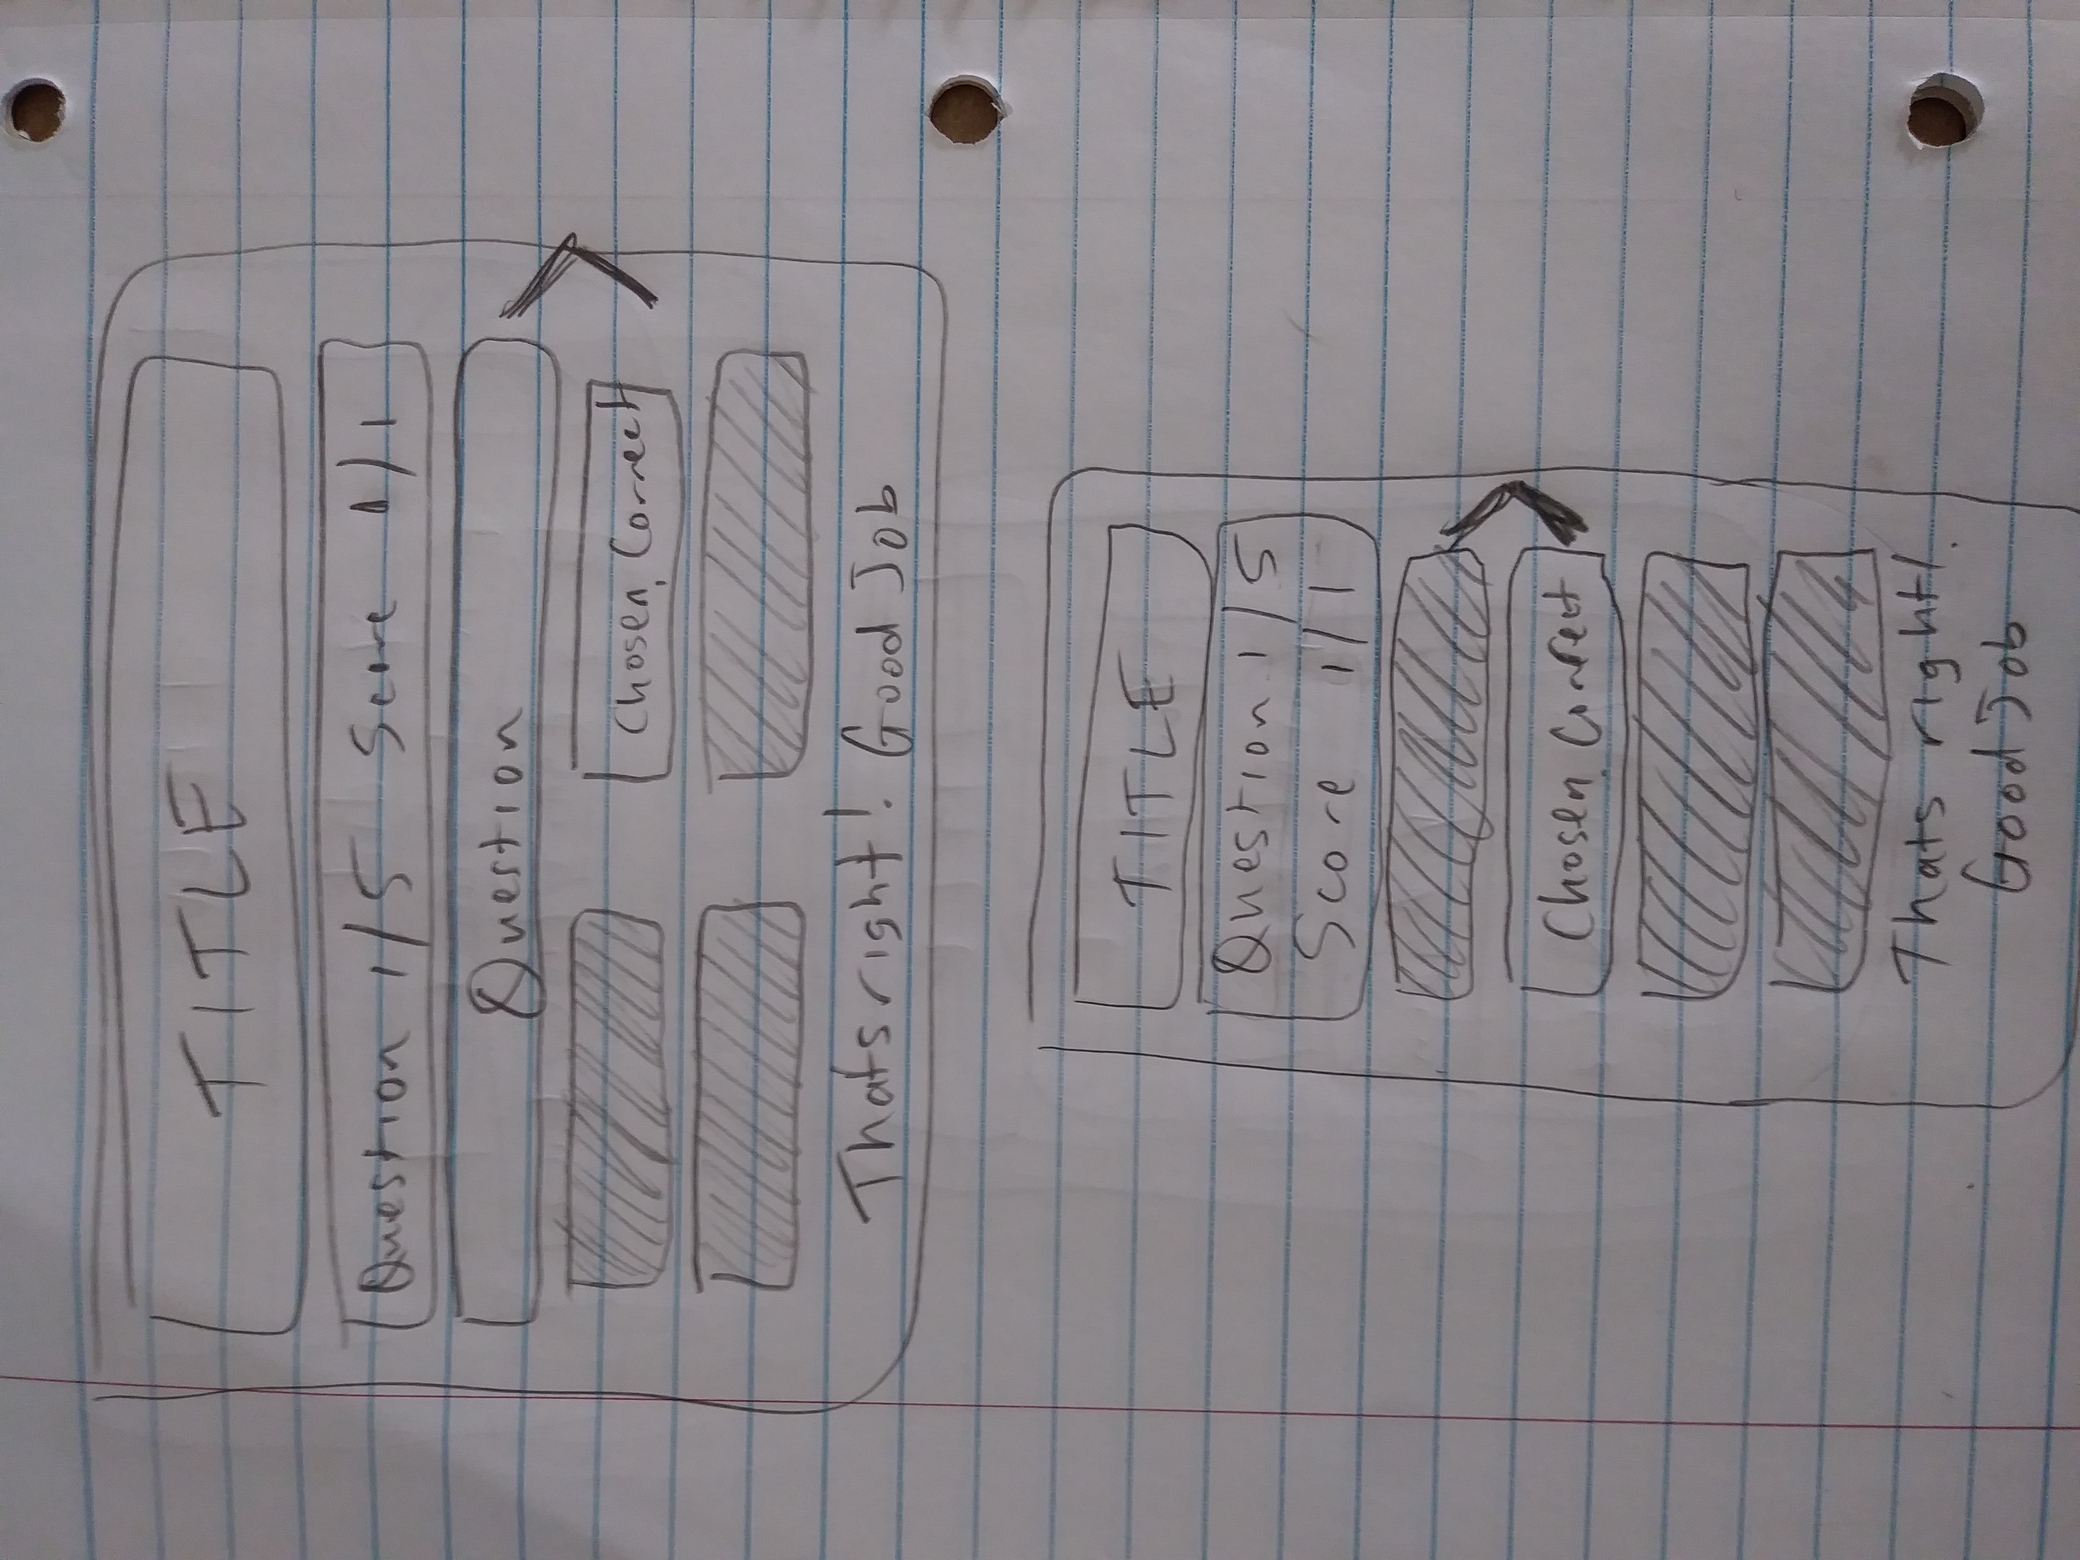 TITLE
Question 1/5 Score 1/1
Question
Chosen, Correct
Thats right! Good Job
TITLE
Question 1/5
Score 1/1
Chosen, Correct
Thats right!
Good Job